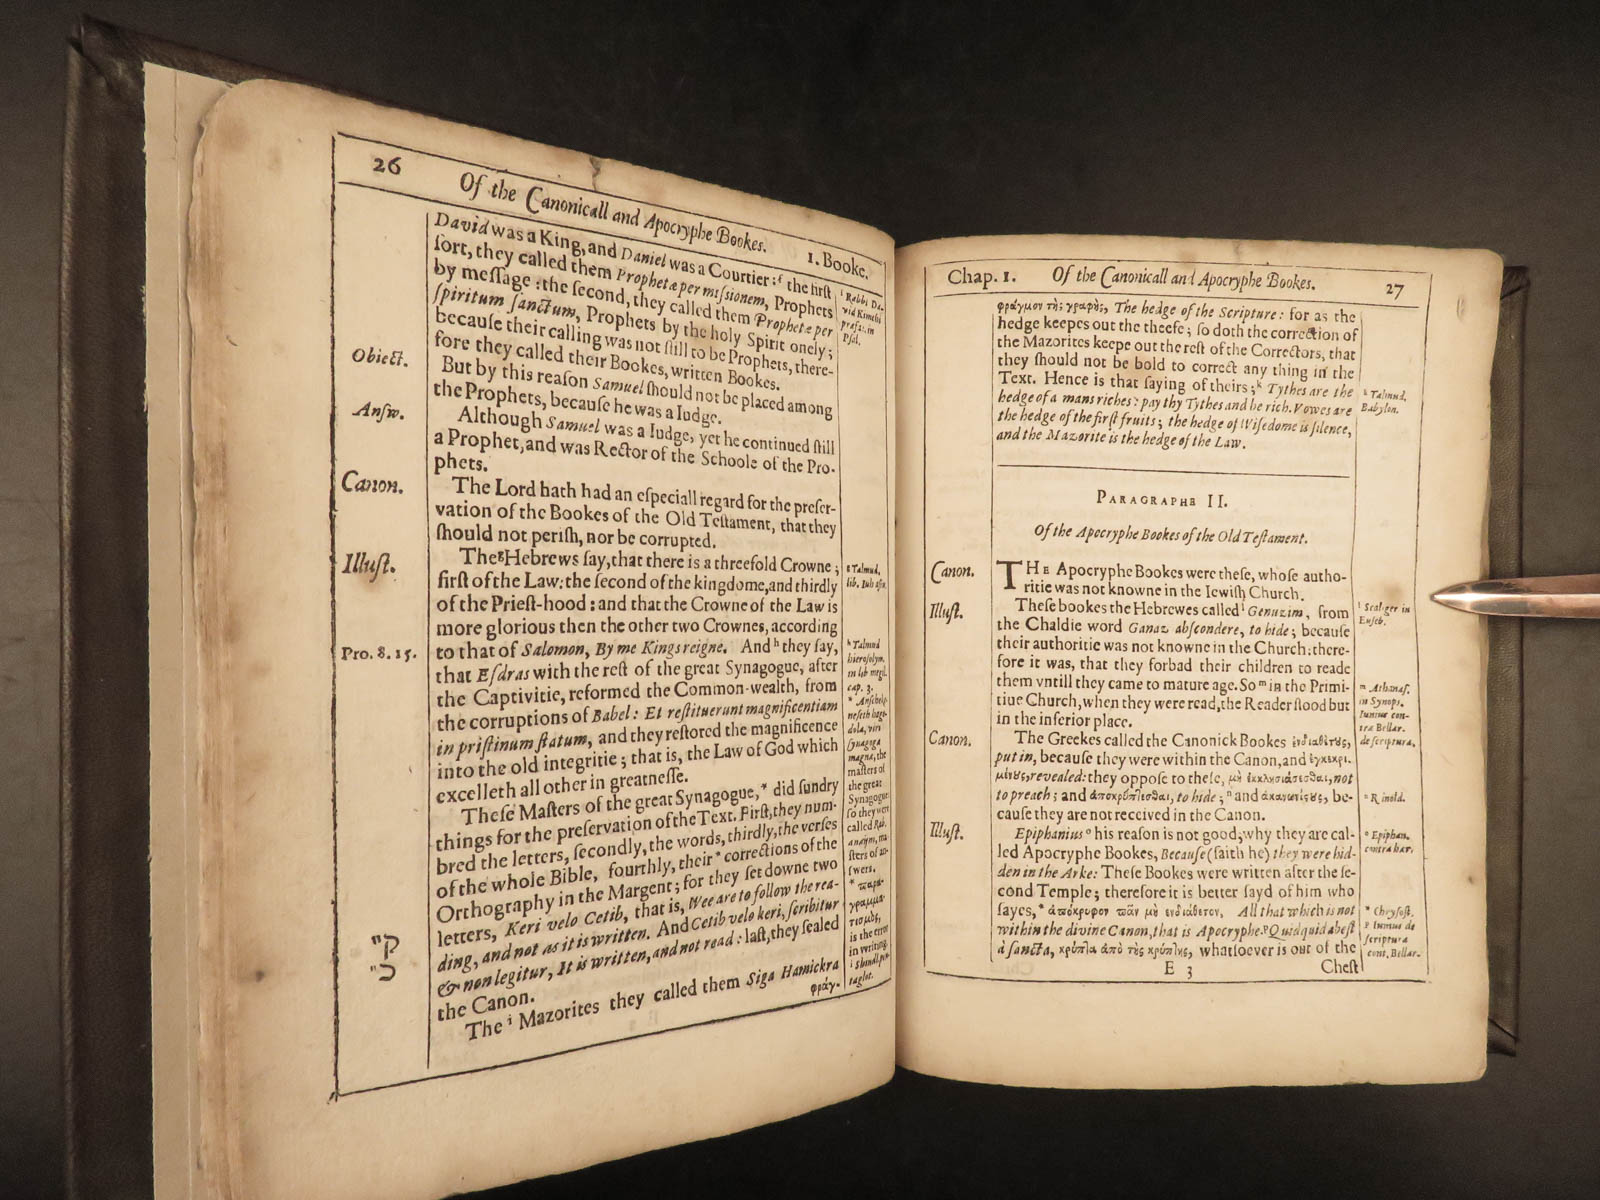 26
Of the Canonicall and Apocryphe Bookes.
1. Booke.
David was a King, and Daniel was a Courtier: the first
sort, they called them Prophetæ per missionem, Prophets
by message: the second, they called them Prophetæ per
spiritum sanctum, Prophets by the holy Spirit onely;
because their calling was not still to be Prophets, there-
fore they called their Bookes, written Bookes.
Obiect.
But by this reason Samuel should not be placed among
the Prophets, because he was a Iudge.
Answ.
Although Samuel was a Iudge, yet he continued still
a Prophet, and was Rector of the Schoole of the Pro-
phets.
Canon.
The Lord hath had an especiall regard for the preser-
vation of the Bookes of the Old Testament, that they
should not perish, nor be corrupted.
Illust.
The g Hebrews say, that there is a threefold Crowne;
first of the Law: the second of the kingdome, and thirdly
of the Priest-hood: and that the Crowne of the Law is
more glorious then the other two Crownes, according
Pro. 8. 15.
to that of Salomon, By me Kings reigne. And h they say,
that Esdras with the rest of the great Synagogue, after
the Captivitie, reformed the Common-wealth, from
the corruptions of Babel: Et restituerunt magnificentiam
in pristinum statum, and they restored the magnificence
into the old integritie; that is, the Law of God which
excelleth all other in greatnesse.
These Masters of the great Synagogue, * did sundry
things for the preservation of the Text. First, they num-
bred the letters, secondly, the words, thirdly, the verses
of the whole Bible, fourthly, their * corrections of the
Orthography in the Margent; for they set downe two
letters, Keri velo Cetib, that is, Wee are to follow the rea-
ding, and not as it is written. And Cetib velo keri, scribitur
& non legitur, It is written, and not read: last, they sealed
the Canon.
ק״
כ״
The i Mazorites they called them Siga Hamickra
φράγ-
f Rabbi Da-
vid Kimchi
præfat. in
Psal.
g Talmud.
h Talmud
hierosolym.
in lib megil.
cap. 3.
* Anschei
neseth hage-
dola, viri
synagoga
magnæ, the
masters of
the great
Synagogue
so they were
called Rab.
masters of an-
swers.
* παρα-
γραμμα-
τισμὸς,
is the error
in writing.
Chap. 1.
Of the Canonicall and Apocryphe Bookes.
27
φράγμον τῆς γραφῆς, The hedge of the Scripture: for as the
hedge keepes out the theefe; so doth the correction of
the Mazorites keepe out the rest of the Correctors, that
they should not be bold to correct any thing in the
Text. Hence is that saying of theirs; k Tythes are the
hedge of a mans riches: pay thy Tythes and be rich. Vowes are
the hedge of the first fruits; the hedge of Wisedome is silence,
and the Mazorite is the hedge of the Law.
k Talmud.
Babylon.
PARAGRAPHE II.
Of the Apocryphe Bookes of the Old Testament.
Canon.
THE Apocryphe Bookes were these, whose autho-
ritie was not knowne in the Iewish Church.
Illust.
These bookes the Hebrewes called l Genuzim, from
the Chaldie word Ganaz abscondere, to hide; because
their authoritie was not knowne in the Church: there-
fore it was, that they forbad their children to reade
them vntill they came to mature age. So m in the Primi-
tiue Church, when they were read, the Reader stood but
in the inferior place.
l Scaliger in
Euseb.
m Athanas.
in Synops.
Iunius con-
tra Bellar.
de scriptura.
Canon.
The Greekes called the Canonick Bookes ἐνδιαθέτους,
put in, because they were within the Canon, and ἐγκεκρι-
μένους, revealed: they oppose to these, μὴ ἐκκλησιάσεσθαι, not
to preach; and ἀποκρύπτεσθαι, to hide; n and ἀκανωνίςους, be-
cause they are not received in the Canon.
n Rainold.
Illust.
Epiphanius o his reason is not good, why they are cal-
led Apocryphe Bookes, Because (saith he) they were hid-
den in the Arke: These Bookes were written after the se-
cond Temple; therefore it is better sayd of him who
sayes, * ἀπόκρυφον πᾶν μὴ ἐνδιάθετον, All that which is not
within the divine Canon, that is Apocryphe. p Quidquid abest
à sancta, κρύπτα ἀπὸ τῆς κρύπτης, whatsoever is out of the
o Epiphan.
contra hær.
* Chrysost.
p Iunius de
scriptura
cont. Bellar.
E 3
Chest